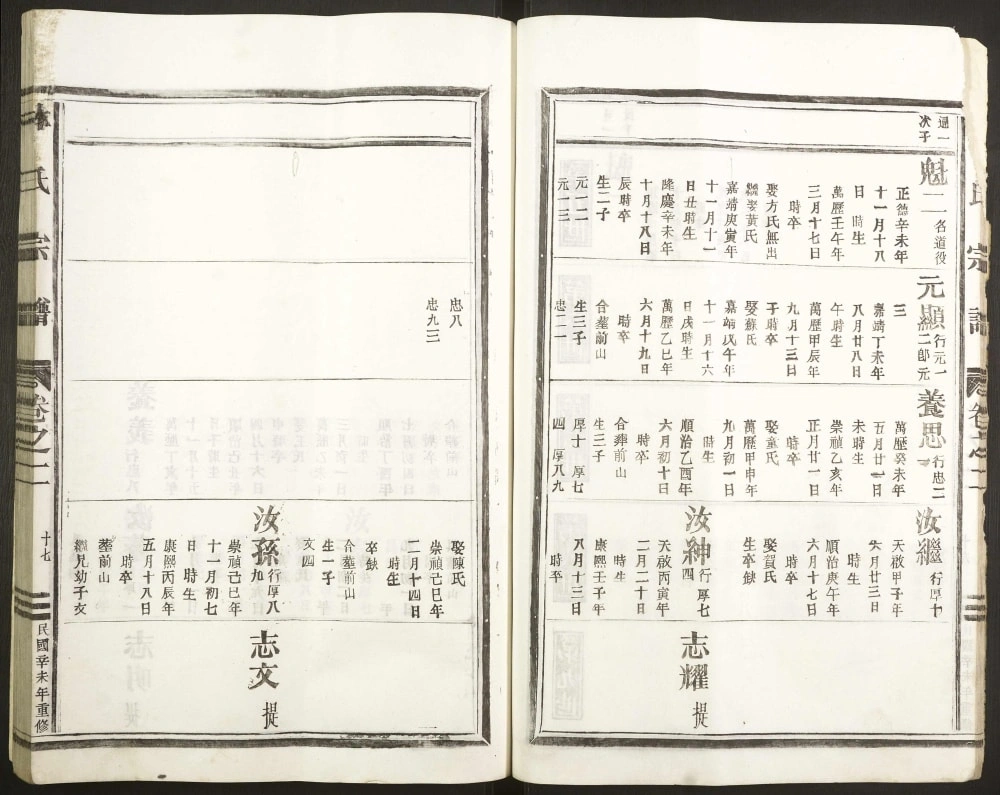 通一
次子
魁二 名道役
正德辛未年
十一月十八
日 時生
萬歷壬午年
三月十七日
時卒
娶方氏無出
繼娶黃氏
嘉靖庚寅年
十一月十一
日丑時生
隆慶辛未年
十月十八日
辰時卒
生二子
元一二
元一三
元顯 行元一
二郎元
三
嘉靖丁未年
八月廿八日
午時生
萬歷甲辰年
九月十三日
子時卒
娶蘇氏
嘉靖戊午年
十一月十六
日戌時生
萬歷乙巳年
六月十九日
時卒
合塟前山
生三子
忠二一
忠八
忠九三
養思 行忠二
一
萬歷癸未年
五月廿一日
未時生
崇禎乙亥年
正月廿一日
時卒
娶童氏
萬歷甲申年
九月初一日
時生
順治乙酉年
六月初十日
時卒
合葬前山
生三子
厚十 厚七
四 厚八九
汝繼 行厚十
天啟甲子年
六月廿三日
時生
順治庚午年
六月十七日
時卒
娶賀氏
生卒缺
汝紳 行厚七
四
天啟丙寅年
二月二十日
時生
康熙壬子年
八月十三日
時卒
娶陳氏
崇禎己巳年
二月十四日
時生
卒缺
合塟前山
生一子
文四
汝孫 行厚八
九
崇禎己巳年
十一月初七
日 時生
康熙丙辰年
五月十八日
時卒
塟前山
繼兄幼子文
志耀 提
志文 提
氏宗譜 卷之二
林氏宗譜 卷之二
十七
民國辛未年重修